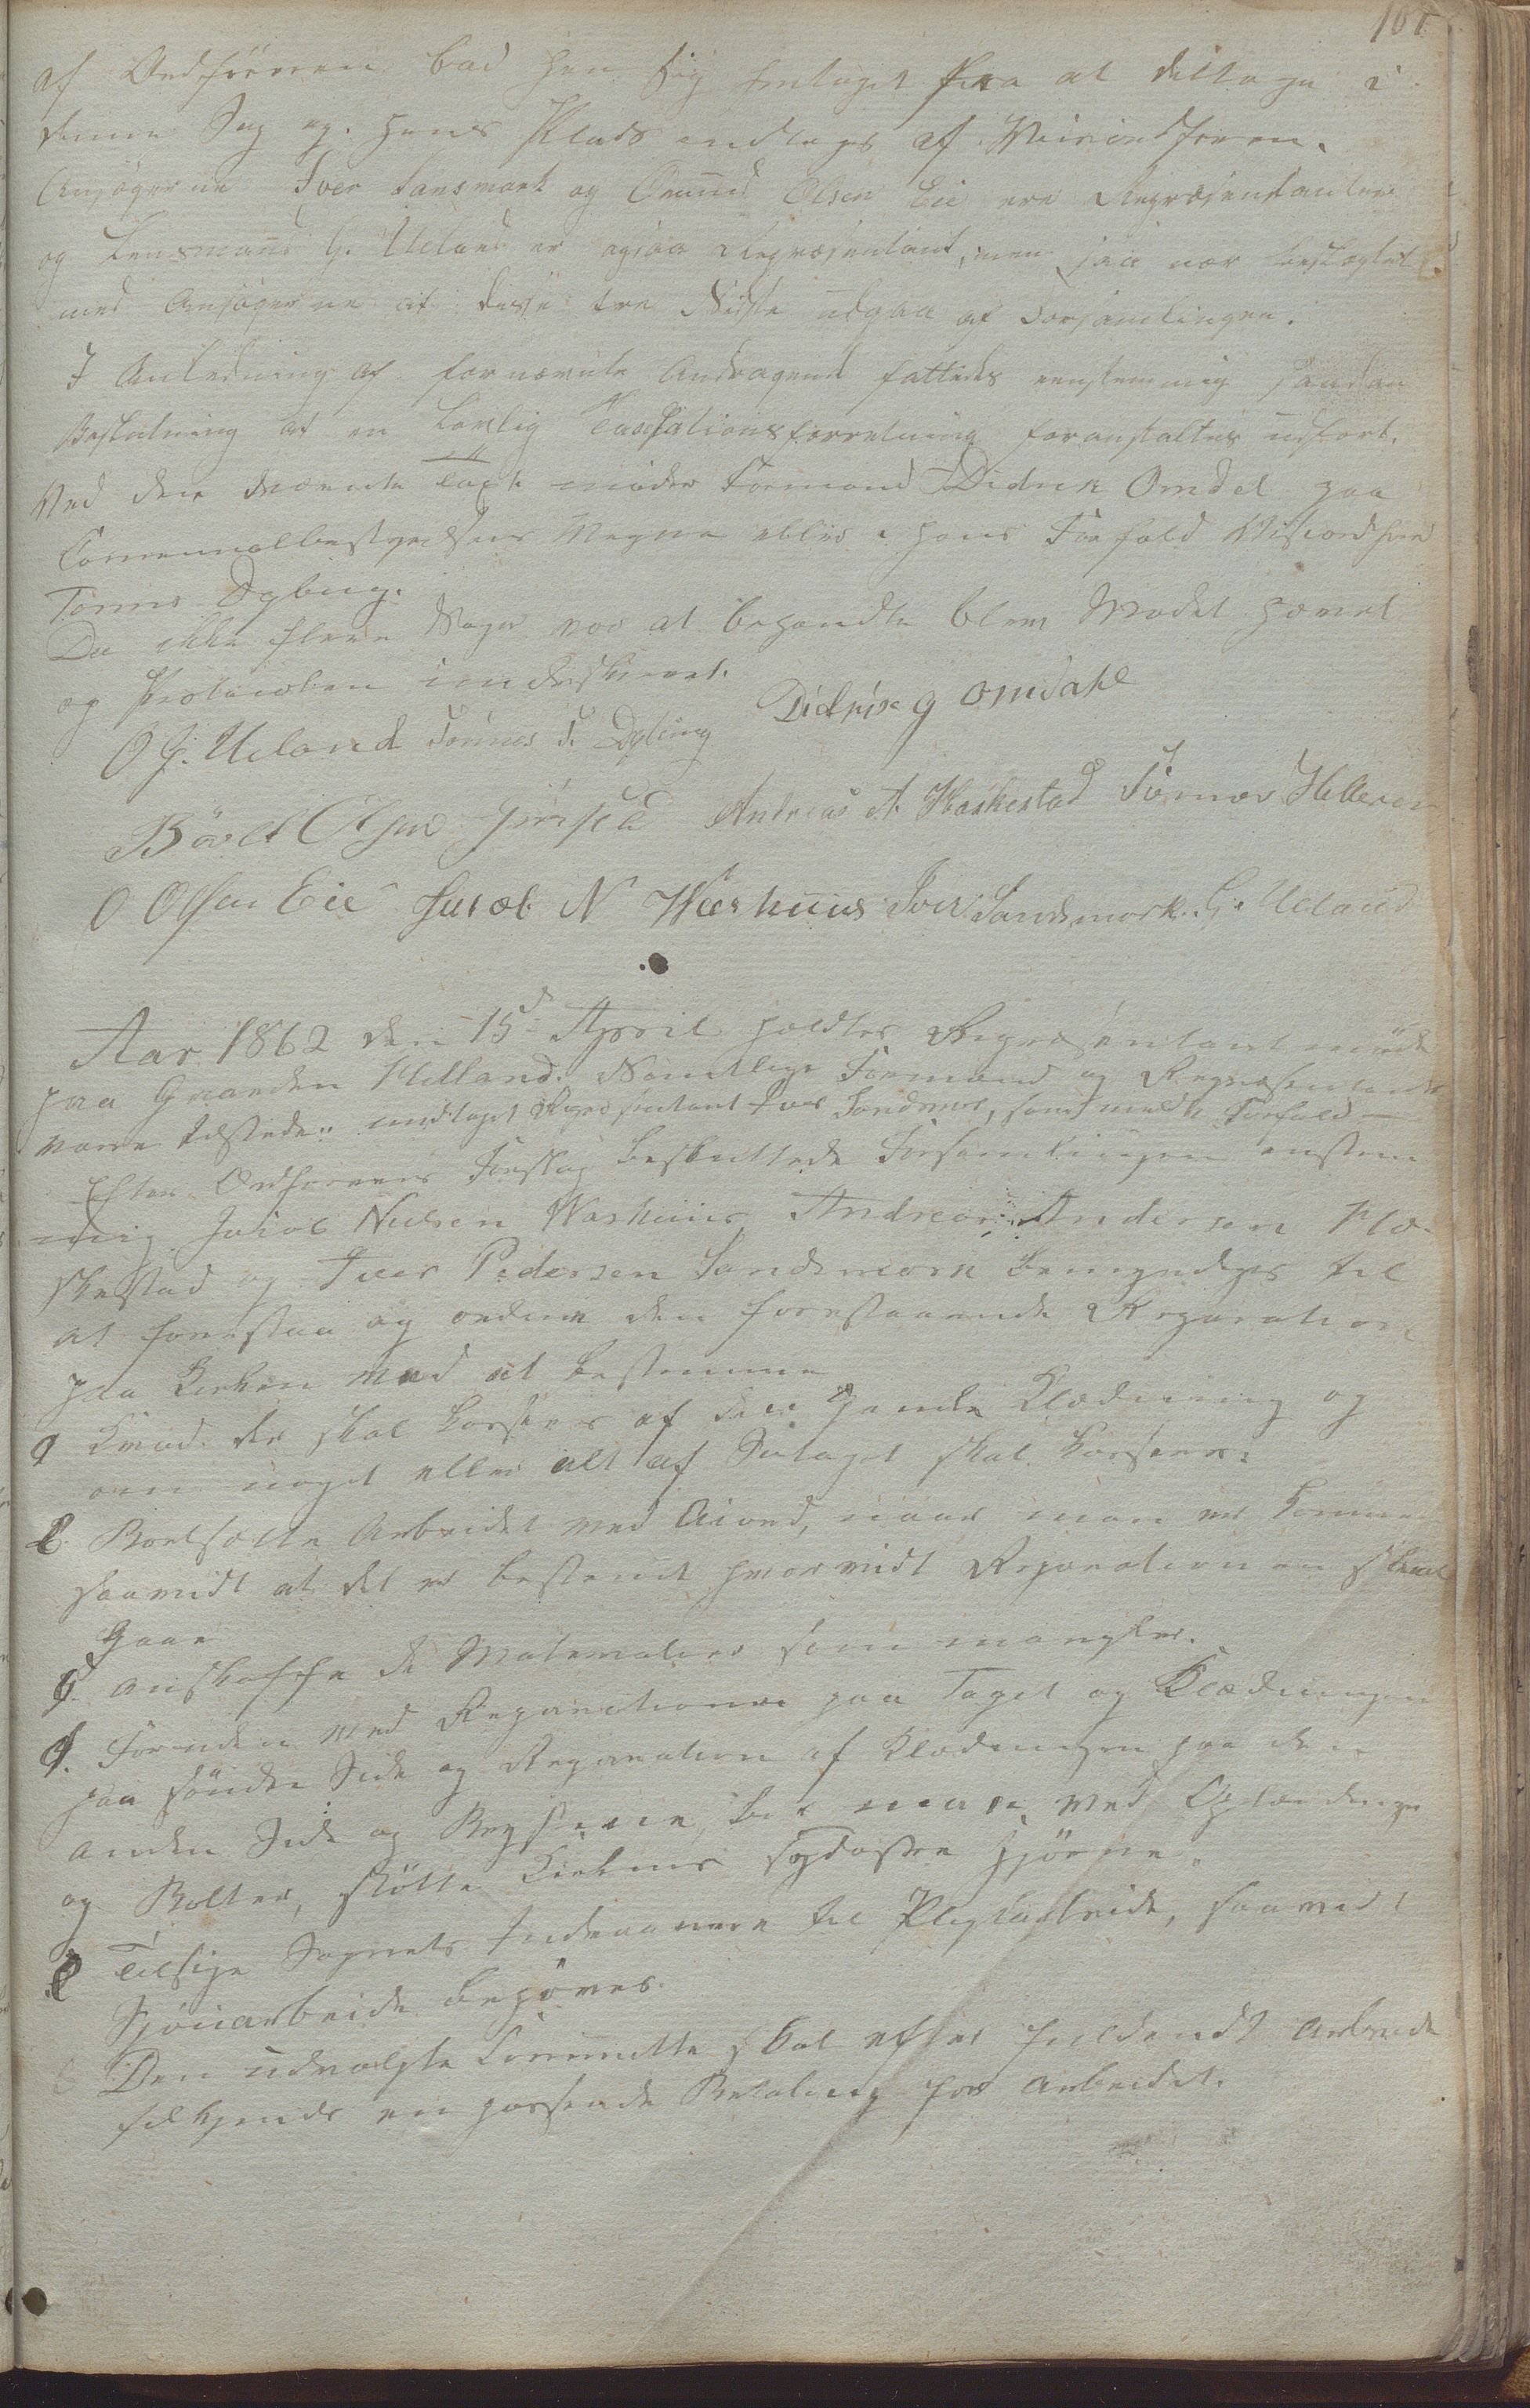 101
af Ordføreren bad han sig fritaget fra at deltage i
denne Sag og hans Plads indtages af Viseordføren.
Ansøgerne Iver Sansmark og Omund Olsen Eie ere Repræsentanter
og Lensmand G. Ueland er ogsaa Repræsentant, men saa nær beslægtet
med Ansøgerne at disse tre Næste udgaa af Forsamlingen.
I Anledning af fornævnte Andragende fattedes eenstemmig saadan
Beslutning at en lovlig Taxationsforretning foranstaltes udført.
Ved den nævnte Taxt møder Formand Didrik Omdal paa
Communalbestyrelsens Vegne eller i hans Forfald Viseordfører
Tønnes Dybing.
Da ikke flere Sager var at behandle blev Mødet hævet
og Protocollen underskrevet.
O G. Ueland Tønnes T. Dybing Didrik G Omdahl
Bård Olsen Andreas A. Haskestad Tønnes Helleren
O Olsen Eie Jacob N Washuus Iver Sandsmork. G. Ueland
Aar 1862 den 15de April holdtes Repræsentantmøde
paa Gaarden Hetland. Samtlige Formænd og Repræsentanter
vare tilstede undtaget Repræsentant Iver Sandsmork, som meldte Forfald
Efter Ordførerens Forslag besluttede Forsamlingen enstem
mig Jacob Nielsen Washuus, Andreas Andersen Ha-
skestad og Iver Pedersen Sandsmork bemyndiges til
at forestaa og ordne den forestaaende Reparation
paa Kirken med at bestemme
a Hvad der skal kasseres af den gamle Klædning og
om noget eller alt af Sutaget skal kasseres.
b. Bortsætte Arbeidet ved Accord, naar man er kommen
saavidt at det er bestemt hvorvidt Reparationen skal
gaae
c. anskaffe de Materialier som mangler.
d. Foruden ved Reparationen paa Taget og Klædningen
paa søndre Side og Reparation af Klædningen paa den
anden Side og, bør man ved Oplændinger
og Bolter, støtte Kirkens sydøstre Hjørne.
e Tilsige Sognets Indvaanere til Pligtarbeide, saavidt
Arbeide behøves.
Den udvalgte Committe skal efter fuldendt Arbeide
tilkjendes en passende Betaling for Arbeidet.